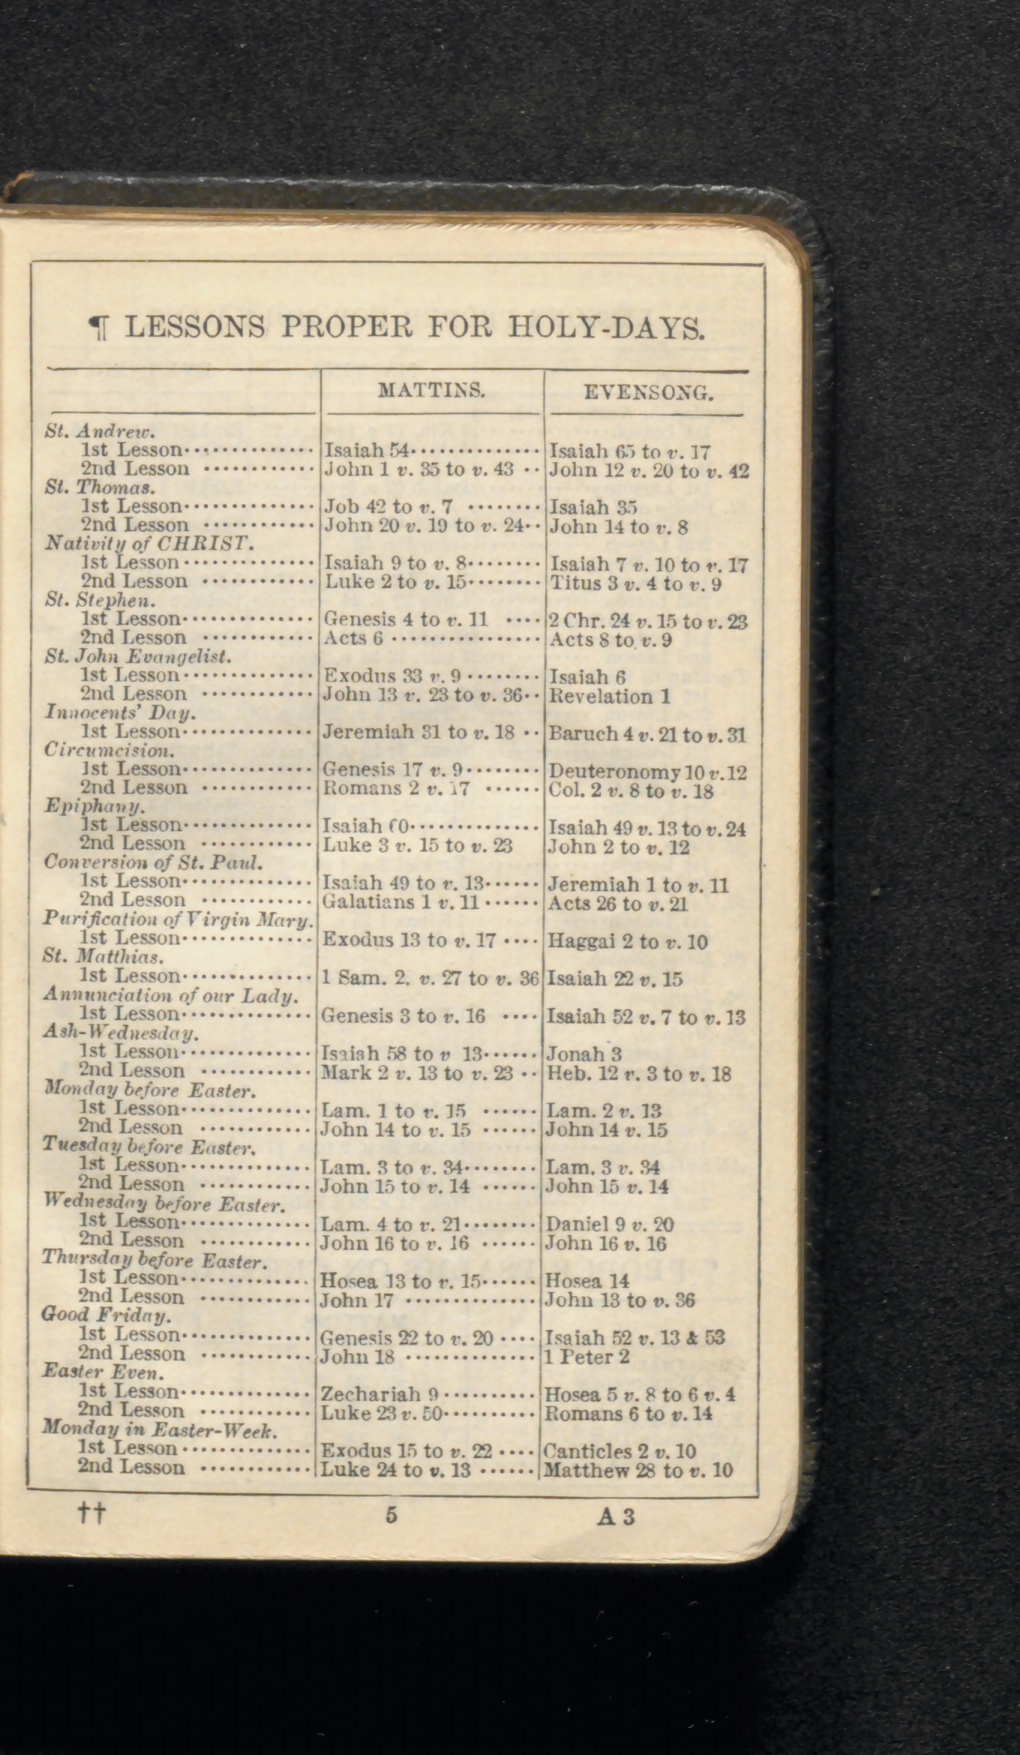 ¶ LESSONS PROPER FOR HOLY-DAYS.
MATTINS. EVENSONG.
St. Andrew.
1st Lesson Isaiah 54 Isaiah 65 to v. 17
2nd Lesson John 1 v. 35 to v. 43 John 12 v. 20 to v. 42
St. Thomas.
1st Lesson Job 42 to v. 7 Isaiah 35
2nd Lesson John 20 v. 19 to v. 24 John 14 to v. 8
Nativity of CHRIST.
1st Lesson Isaiah 9 to v. 8 Isaiah 7 v. 10 to v. 17
2nd Lesson Luke 2 to v. 15 Titus 3 v. 4 to v. 9
St. Stephen.
1st Lesson Genesis 4 to v. 11 2 Chr. 24 v. 15 to v. 23
2nd Lesson Acts 6 Acts 8 to v. 9
St. John Evangelist.
1st Lesson Exodus 33 v. 9 Isaiah 6
2nd Lesson John 13 v. 23 to v. 36 Revelation 1
Innocents' Day.
1st Lesson Jeremiah 31 to v. 18 Baruch 4 v. 21 to v. 31
Circumcision.
1st Lesson Genesis 17 v. 9 Deuteronomy 10 v. 12
2nd Lesson Romans 2 v. 17 Col. 2 v. 8 to v. 18
Epiphany.
1st Lesson Isaiah 60 Isaiah 49 v. 13 to v. 24
2nd Lesson Luke 3 v. 15 to v. 23 John 2 to v. 12
Conversion of St. Paul.
1st Lesson Isaiah 49 to v. 13 Jeremiah 1 to v. 11
2nd Lesson Galatians 1 v. 11 Acts 26 to v. 21
Purification of Virgin Mary.
1st Lesson Exodus 13 to v. 17 Haggai 2 to v. 10
St. Matthias.
1st Lesson 1 Sam. 2. v. 27 to v. 36 Isaiah 22 v. 15
Annunciation of our Lady.
1st Lesson Genesis 3 to v. 16 Isaiah 52 v. 7 to v. 13
Ash-Wednesday.
1st Lesson Isaiah 58 to v 13 Jonah 3
2nd Lesson Mark 2 v. 13 to v. 23 Heb. 12 v. 3 to v. 18
Monday before Easter.
1st Lesson Lam. 1 to v. 15 Lam. 2 v. 13
2nd Lesson John 14 to v. 15 John 14 v. 15
Tuesday before Easter.
1st Lesson Lam. 3 to v. 34 Lam. 3 v. 34
2nd Lesson John 15 to v. 14 John 15 v. 14
Wednesday before Easter.
1st Lesson Lam. 4 to v. 21 Daniel 9 v. 20
2nd Lesson John 16 to v. 16 John 16 v. 16
Thursday before Easter.
1st Lesson Hosea 13 to v. 15 Hosea 14
2nd Lesson John 17 John 13 to v. 36
Good Friday.
1st Lesson Genesis 22 to v. 20 Isaiah 52 v. 13 & 53
2nd Lesson John 18 1 Peter 2
Easter Even.
1st Lesson Zechariah 9 Hosea 5 v. 8 to 6 v. 4
2nd Lesson Luke 23 v. 50 Romans 6 to v. 14
Monday in Easter-Week.
1st Lesson Exodus 15 to v. 22 Canticles 2 v. 10
2nd Lesson Luke 24 to v. 13 Matthew 28 to v. 10
†† 5 A 3